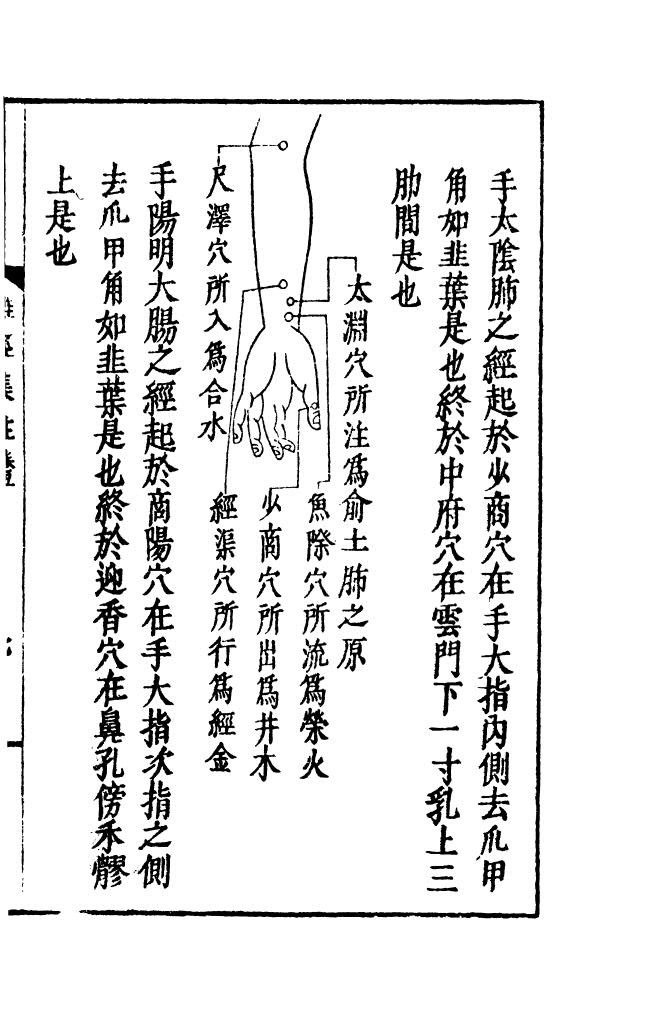 手太陰肺之經起於少商穴在手大指內側去爪甲
角如韭葉是也終於中府穴在雲門下一寸乳上三
肋間是也
太淵穴所注爲俞土肺之原
魚際穴所流爲滎火
少商穴所出爲井木
經渠穴所行爲經金
尺澤穴所入爲合水
手陽明大腸之經起於商陽穴在手大指次指之側
去爪甲角如韭葉是也終於迎香穴在鼻孔傍禾髎
上是也